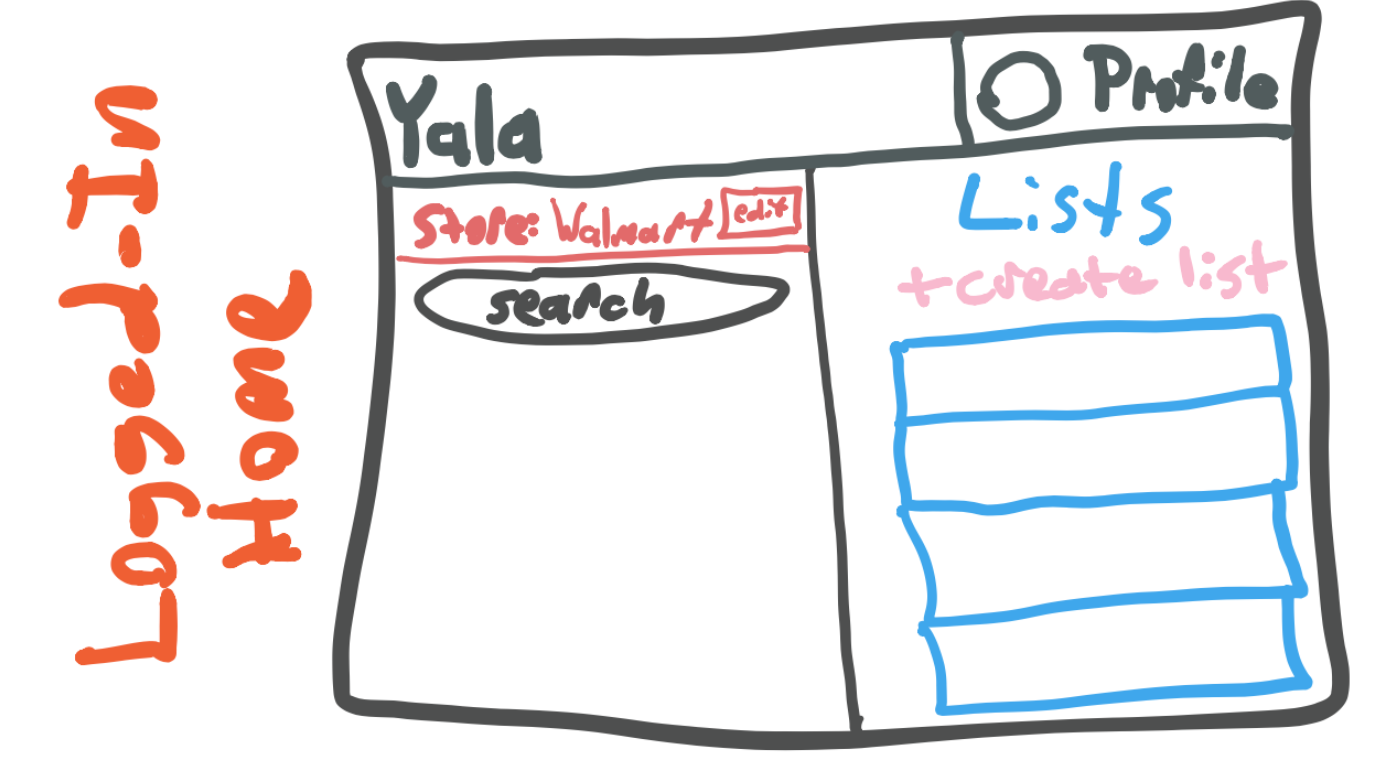 Logged-In
Home
Yala
Profile
Store: Walmart edit
search
Lists
+create list